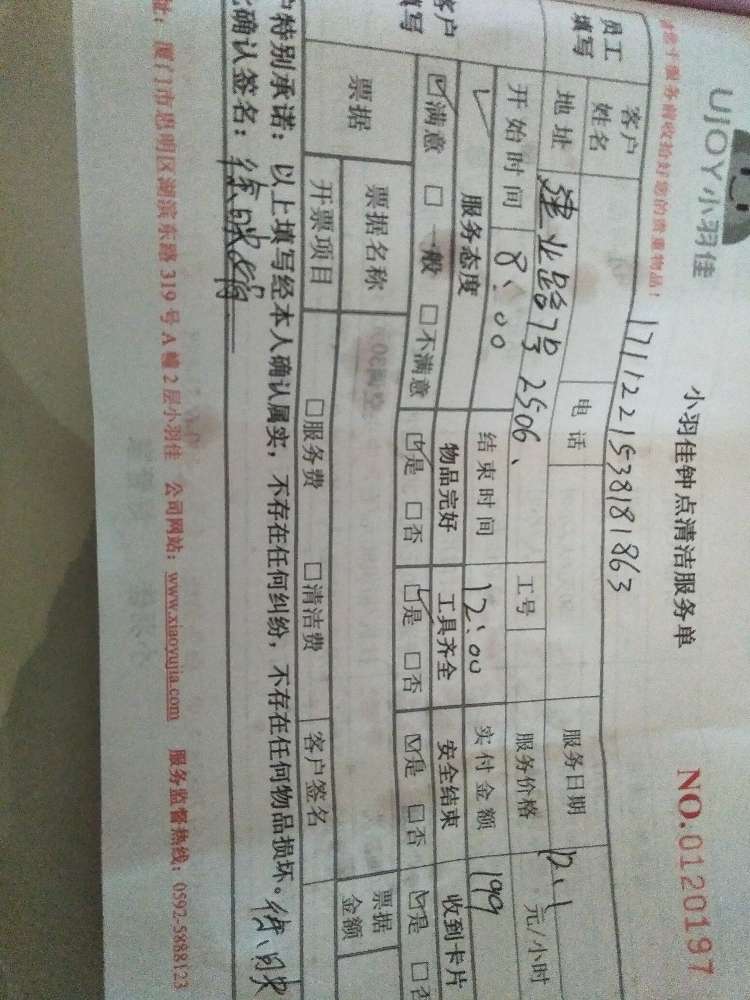 UJOY小羽佳
小羽佳钟点清洁服务单
NO.0120197
服务前收拾好您的贵重物品!
171122153818 1863
员工填写
客户姓名
电话
服务日期
12.1
地址
建业路7号2506、
工号
服务价格
元/小时
开始时间
8:00
结束时间
12:00
实付金额
199
客户填写
服务态度
物品完好
工具齐全
安全结束
收到卡片
☑满意 □一般 □不满意
☑是 □否
☑是 □否
☑是 □否
☑是 □否
票据
票据名称
票据金额
开票项目
□服务费 □清洁费
客户签名
户特别承诺:以上填写经本人确认属实,不存在任何纠纷,不存在任何物品损坏。
确认签名:
址:厦门市思明区湖滨东路319号A幢2层小羽佳 公司网站:www.xiaoyujia.com 服务监督热线:0592-5888123